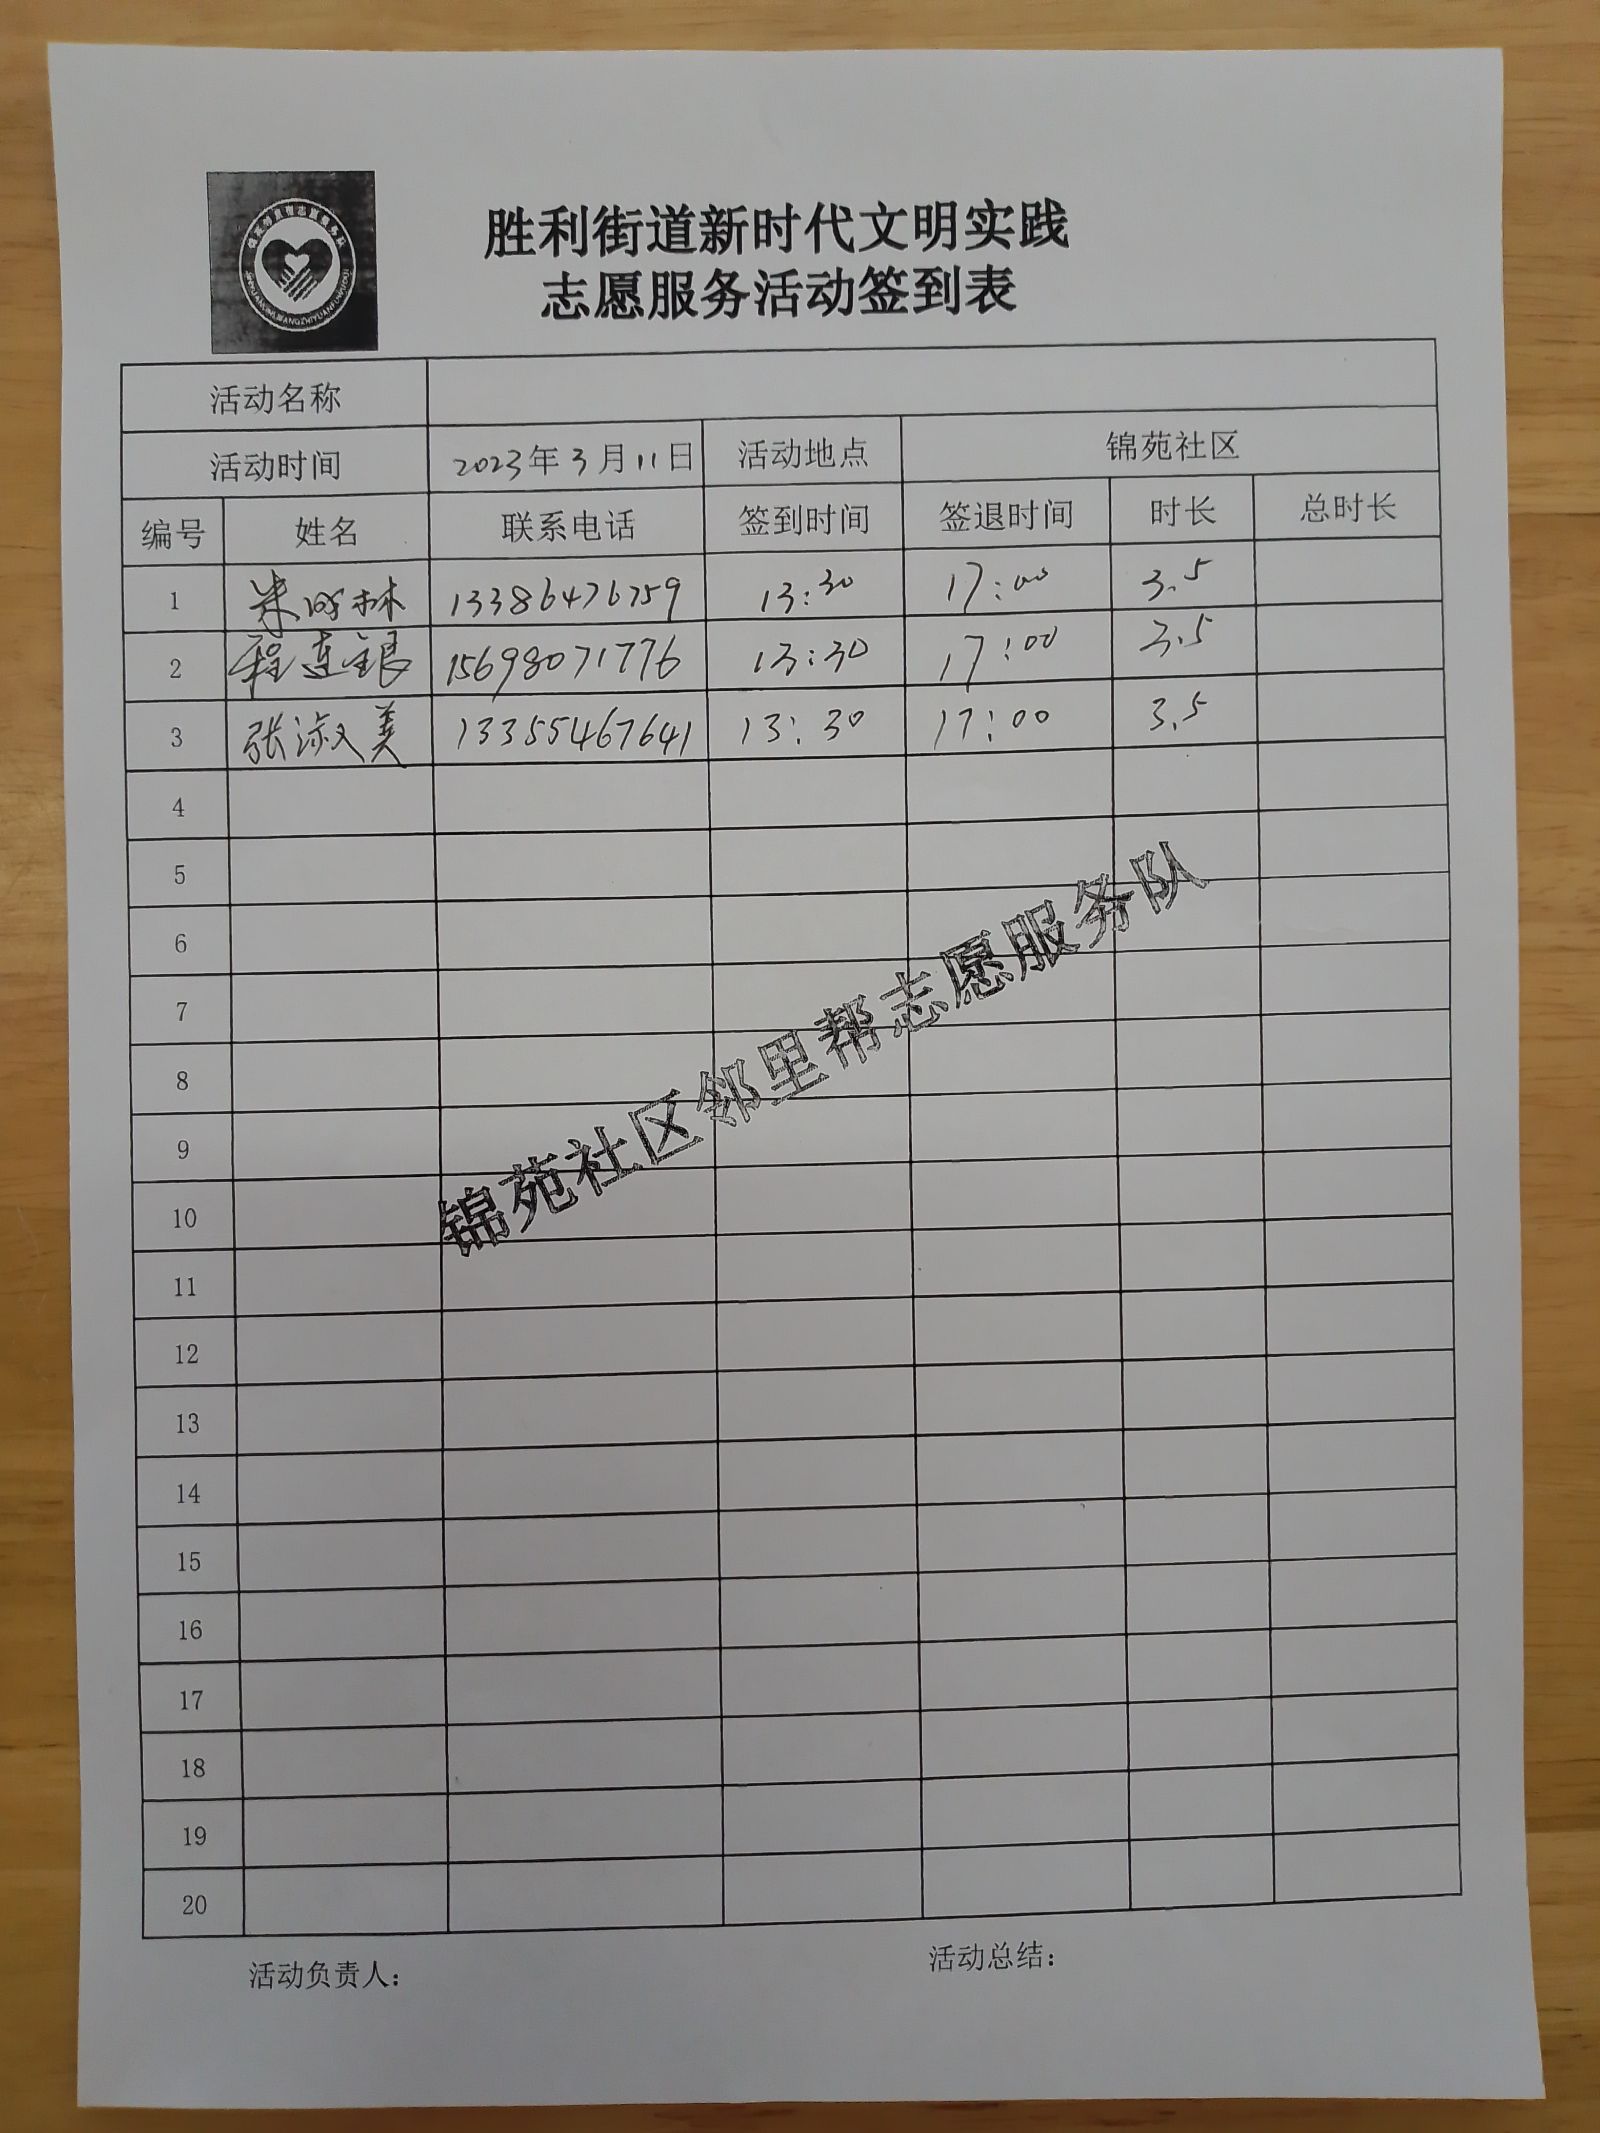 胜利街道新时代文明实践
志愿服务活动签到表
活动名称
活动时间 2023年3月11日 活动地点 锦苑社区
编号 姓名 联系电话 签到时间 签退时间 时长 总时长
1 林 13386476759 13:30 17:00 3.5
2 程连银 15698071776 13:30 17:00 3.5
3 张淑美 13355467641 13:30 17:00 3.5
4
5
6
7
8
9
10
11
12
13
14
15
16
17
18
19
20
锦苑社区邻里帮志愿服务队
活动负责人：
活动总结：